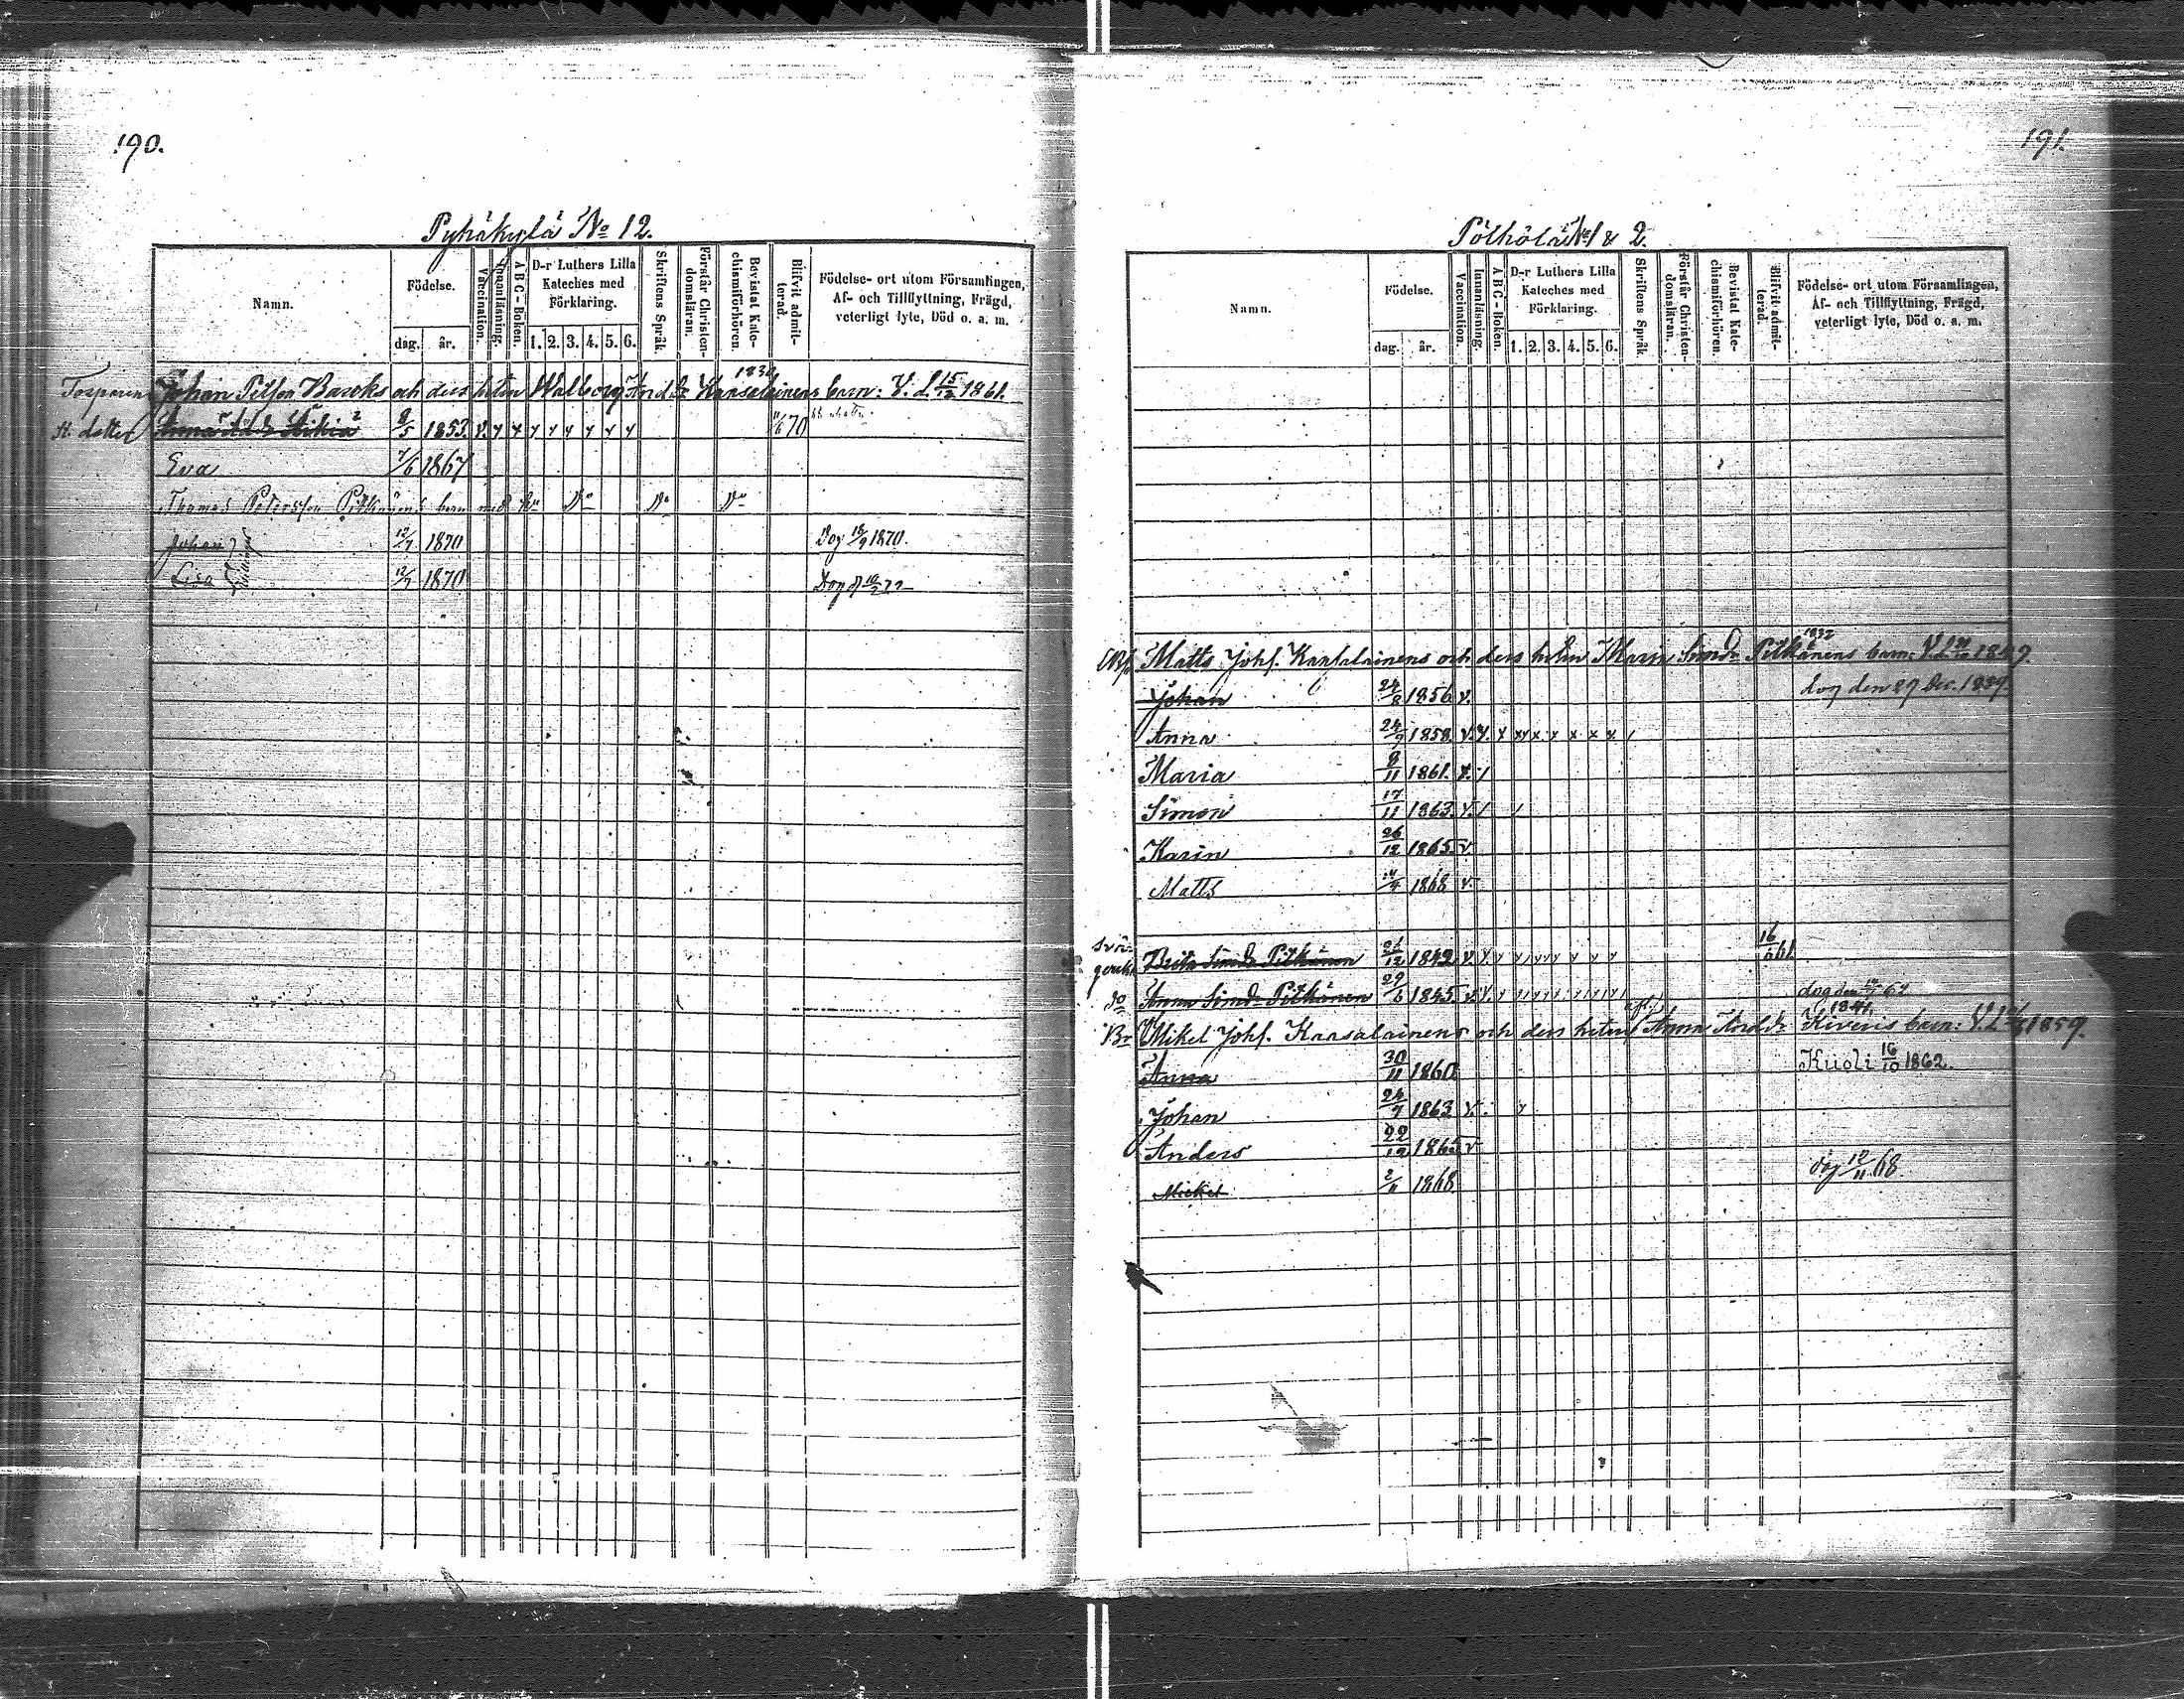 190.
Pyhäkylä No 12.
Namn.
Födelse.
dag. år.
Vaccination.
Innanläsning.
A B C - Boken.
D-r Luthers Lilla
Kateches med
Förklaring.
1. 2. 3. 4. 5. 6.
Skriftens Språk.
Förstår Christen-
domsläran.
Bevistat Kate-
chismiförhören.
Blifvit admit-
terad.
Födelse- ort utom Församlingen,
Af- och Tillflyttning, Frägd,
veterligt lyte, Död o. a. m.
Johan och dess Walborg Kansalainens barn: V. d. 15/12 1861.
st. dotter Anna 8/5 1853 v. 70
Eva 7/6 1867
Thomas Petersson Pitkänens barn med
Johan 12/7 1870 Dog 1870.
Lisa 12/7 1870 Dog
191.
Pölhölä No 1 & 2.
Namn.
Födelse.
dag. år.
Vaccination.
Innanläsning.
A B C - Boken.
D-r Luthers Lilla
Kateches med
Förklaring.
1. 2. 3. 4. 5. 6.
Skriftens Språk.
Förstår Christen-
domsläran.
Bevistat Kate-
chismiförhören.
Blifvit admit-
terad.
Födelse- ort utom Församlingen,
Af- och Tillflyttning, Frägd,
veterligt lyte, Död o. a. m.
Matts Johs. Kansalainens och dess Simdr Pitkänens barn:
Johan 24/8 1856 v. dog den 27 Dec.
Anna 24/7 1858. v.
Maria 8/11 1861. v.
Simon 17/11 1863. v.
Karin 26/12 1865. v.
Matts 1868 v.
Brita Simdr Pitkänen 26/12 1842 v. 16/6 61.
do Anna Simdr Pitkänen 29/6 1845 v. dog den
Br Mikel Johs. Kansalainens och dess Anna Anddr Kiveris barn: 1859.
Anna 30/11 1860 Kuoli 16/10 1862.
Johan 24/7 1863 v.
Anders 22/12 1865 v
Mickel 2/11 1868 dog 10/11 68